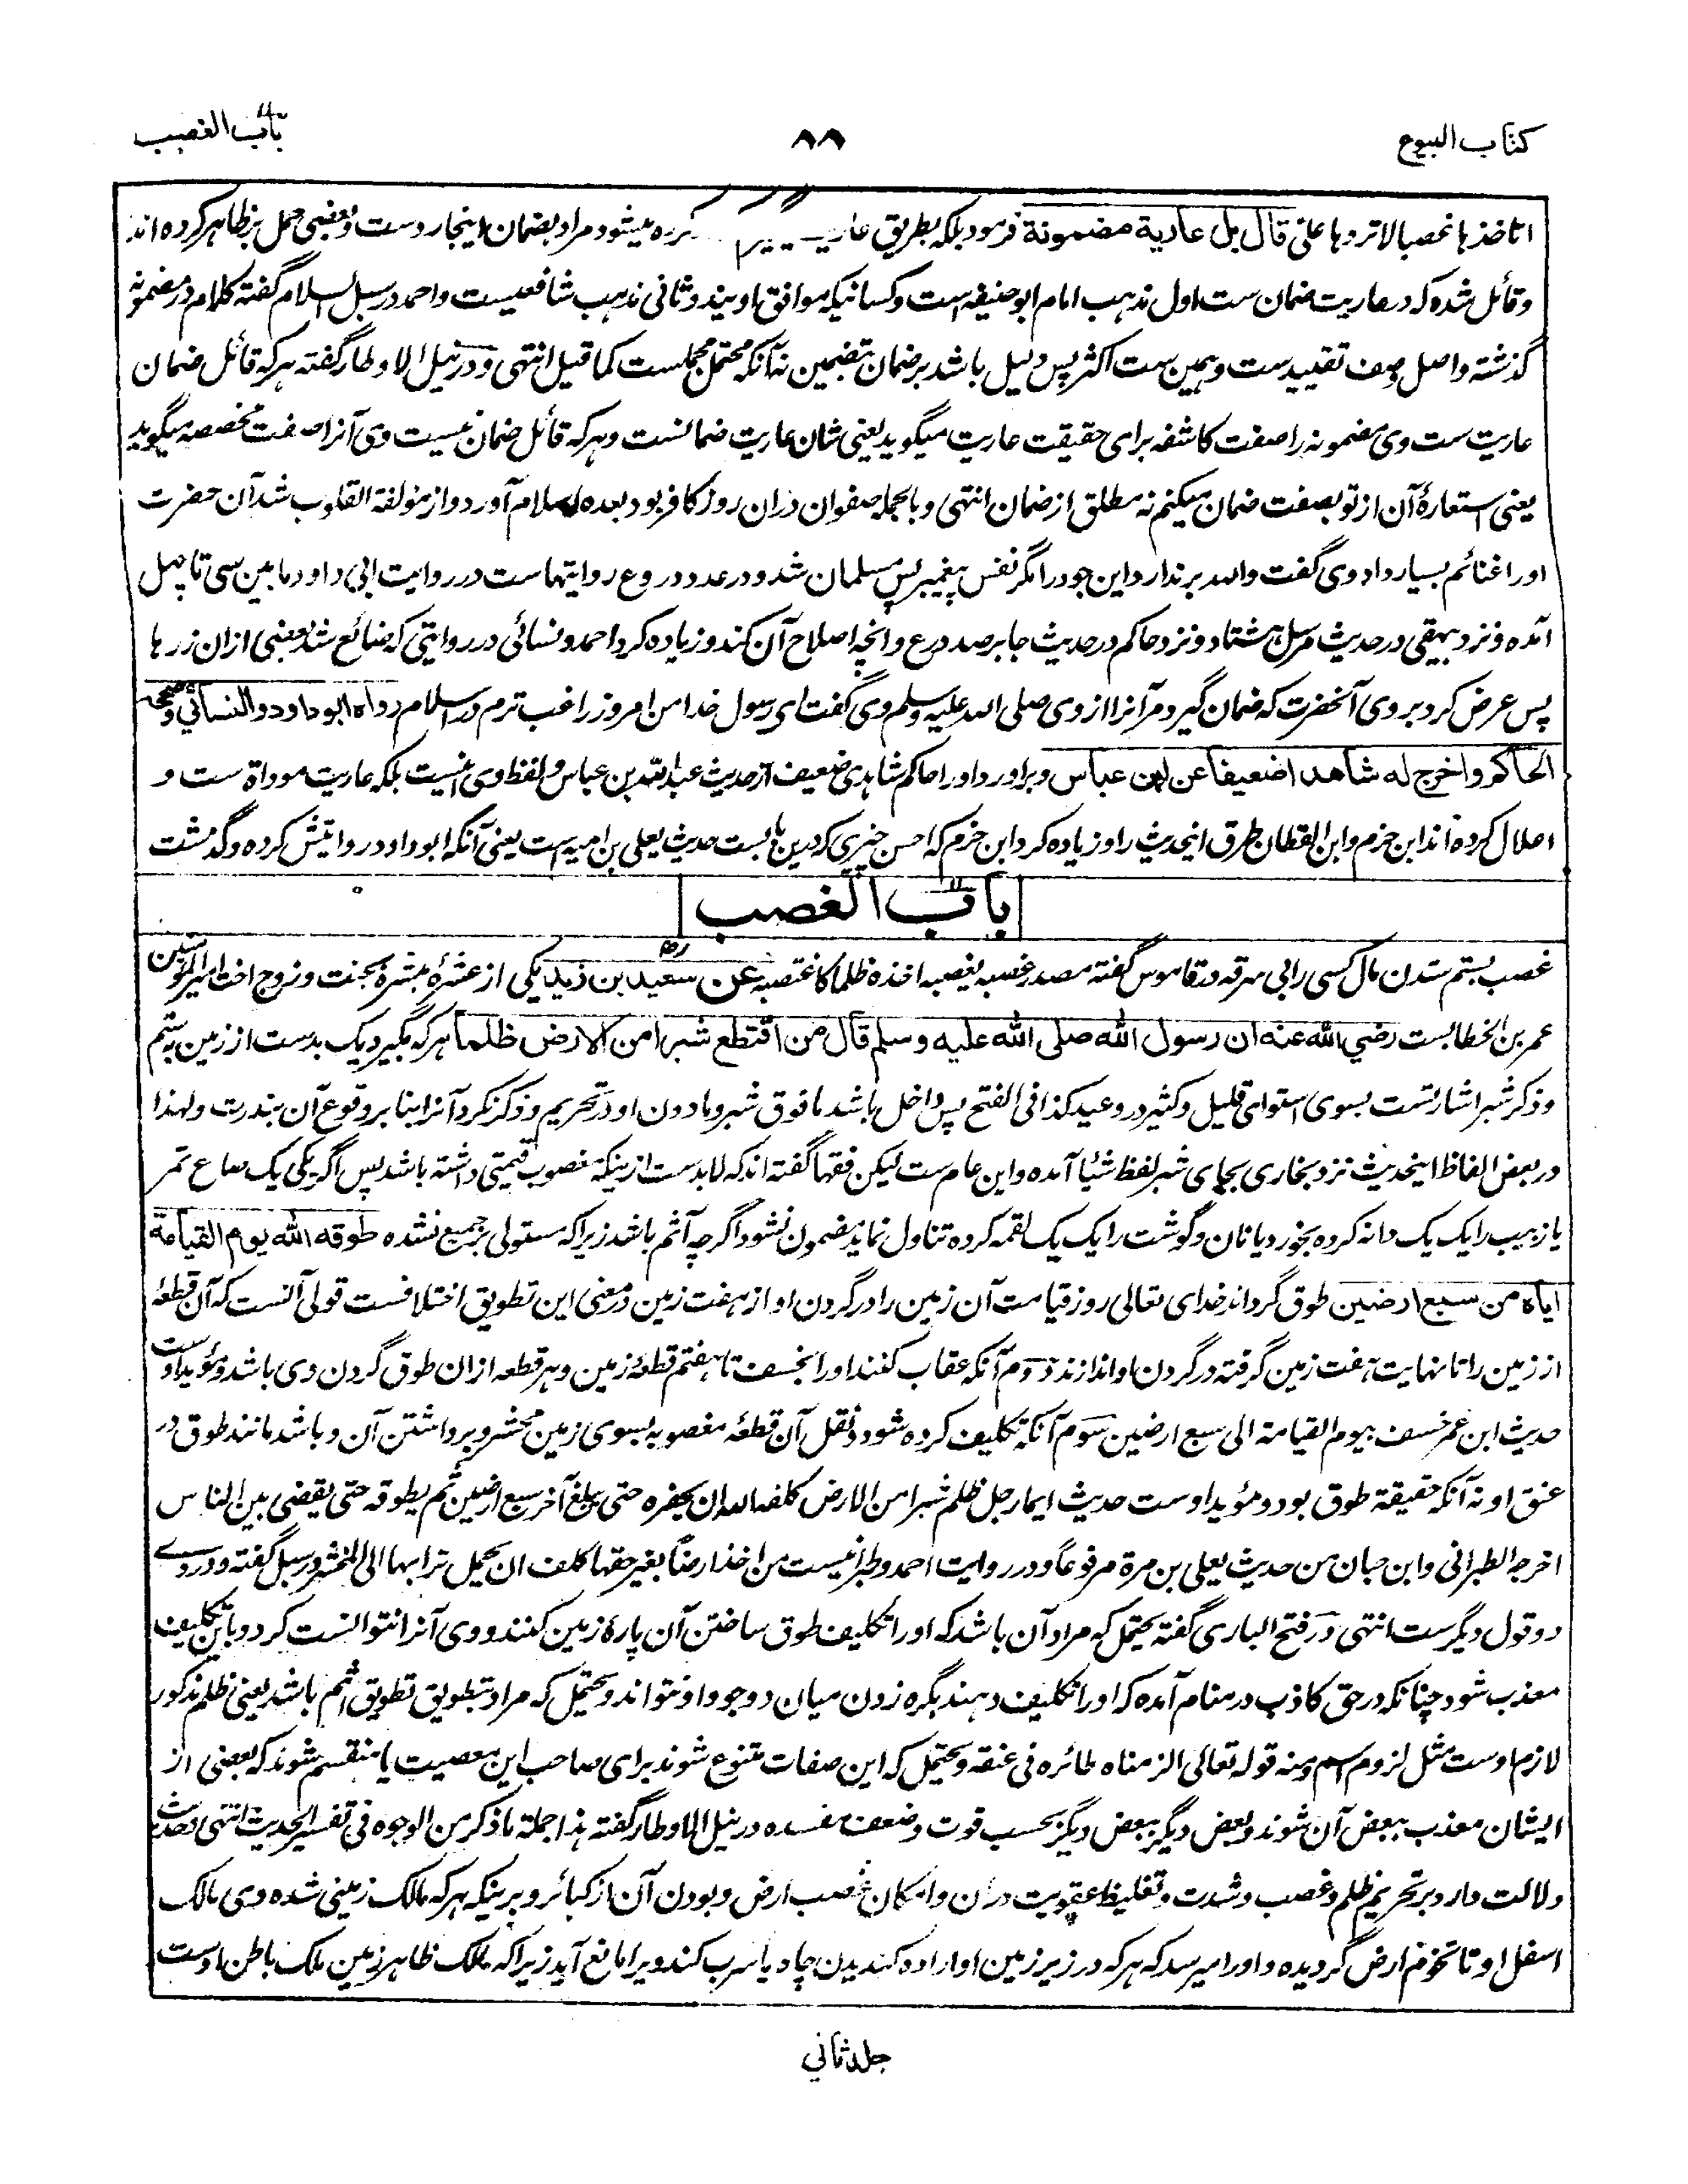 کتاب البیوع
۸۸
باب الغصب
اتاخذہا غصبا لاتردہا علی قال بل عارية مضمونة فرمود بلکہ بطریق عاریت کردہ میشود مراد بضمان اینجا ردست وبعضی حمل برظاہر کردہ اند
وقائل شدہ کہ در عاریت ضمان ست اول مذہب امام ابوحنیفہ است وکسانیکہ موافق اویند وثانی مذہب شافعیست واحمد در سبل السلام گفتہ کلام در مضمونہ
گذشتہ واصل وصف تقییدست وہمین ست اکثر پس دلیل باشد برضمان بتضمین نہ آنکہ محتمل مجملست کما قیل انتہی ودر نیل الاوطار گفتہ ہرکہ قائل ضمان
عاریت ست وی مضمونہ را صفت کاشفہ برای حقیقت عاریت میگوید یعنی شان عاریت ضمانست وہرکہ قائل ضمان نیست وی آنرا صفت مخصصہ میگوید
یعنی استعارۂ آن از تو بصفت ضمان میکنم نہ مطلق از ضمان انتہی وبالجملہ صفوان دران روز کافر بود بعدہ اسلام آورد واز مؤلفة القلوب شد آن حضرت
اورا غنائم بسیار داد وی گفت واللہ برندارد این جود را مگر نفس پیغمبر پس مسلمان شد ودر عدد دروع روایتہاست در روایت ابی داود مابین سی تا چہل
آمدہ ونزد بیہقی در حدیث مرسل ہشتاد ونزد حاکم در حدیث جابر صد درع وانچہ اصلاح آن کند وزیادہ کرد احمد ونسائی در روایتی کہ ضائع شد بعضی ازان زرہا
پس عرض کرد بر وی آنحضرت کہ ضمان گیرد مر آنرا از وی صلی اللہ علیہ وسلم وی گفت ای رسول خدا من امروز راغب ترم در اسلام رواہ ابو داود والنسائي وصححہ
الحاکم واخرج لہ شاہدا ضعیفا عن ابن عباس وبرآورد اورا حاکم شاہدی ضعیف از حدیث عبد اللہ بن عباس ولفظ وی اینست بلکہ عاریت موداة ست و
اعلال کردہ اند ابن حزم وابن القطان طرق اینحدیث را وزیادہ کرد ابن حزم کہ احسن چیزی کہ درین بابست حدیث یعلی بن امیہ است یعنی آنکہ ابوداود روایتش کردہ وگذشت
باب الغصب
غصب بستم ستدن مال کسی را بی سرقہ در قاموس گفتہ مصدر غصبہ یغصبہ اخذہ ظلما کاغتصبہ عن سعید بن زید یکی از عشرۂ مبشرہ بجنت وزوج اخت امیر المؤمنین
عمر بن الخطابست رضي اللہ عنہ ان رسول اللہ صلی اللہ علیہ وسلم قال من اقتطع شبرا من الارض ظلما ہرکہ بگیرد یک بدست از زمین بستم
وذکر شبر اشارتست بسوی استوای قلیل وکثیر در وعید کذا فی الفتح پس داخل باشد مافوق شبر ومادون او در تحریم وذکر نکرد آنرا بنا بر وقوع آن بندرت ولہذا
در بعض الفاظ اینحدیث نزد بخاری بجای شبر لفظ شیئا آمدہ واین عام ست لیکن فقہا گفتہ اند کہ لابدست ازینکہ مغصوب قیمتی داشتہ باشد پس اگر یکی یک صاع تمر
یا زبیب را یک یک دانہ کردہ بخورد یا نان وگوشت را یک یک لقمہ کردہ تناول نماید مضمون نشود اگرچہ آثم باشد زیراکہ مستولی بر جمیع نشدہ طوقہ اللہ یوم القیامة
ایاہ من سبع ارضین طوق گرداند خدای تعالی روز قیامت آن زمین را در گردن او از ہفت زمین در معنی این تطویق اختلافست قولی آنست کہ آن قطعۂ
از زمین را تا نہایت ہفت زمین گرفتہ در گردن او اندازند دوم آنکہ عقاب کنند اورا بخسف تا ہفتم قطعۂ زمین وہر قطعہ ازان طوق گردن وی باشد ومؤید اوست
حدیث ابن عمر خسف بہ یوم القیامة الی سبع ارضین سوم آنکہ تکلیف کردہ شود بنقل آن قطعۂ مغصوبہ بسوی زمین محشر وبرداشتن آن وباشد مانند طوق در
عنق او نہ آنکہ حقیقة طوق بود ومؤید اوست حدیث ایما رجل ظلم شبرا من الارض کلفہ اللہ ان یحفرہ حتی یبلغ آخر سبع ارضین ثم یطوقہ حتی یقضی بین الناس
اخرجہ الطبرانی وابن حبان من حدیث یعلی بن مرة مرفوعا ودر روایت احمد وطبرانیست من اخذ ارضا بغیر حقہا کلف ان یحمل ترابہا الی المحشر در سبل گفتہ ودر وے
دو قول دیگرست انتہی در فتح الباری گفتہ یحتمل کہ مراد آن باشد کہ اورا تکلیف طوق ساختن آن پارۂ زمین کنند ووی آنرا نتوانست کرد وباین تکلیف
معذب شود چنانکہ در حق کاذب در منام آمدہ کہ اورا تکلیف دہند بگرہ زدن میان دو جو واو نتواند ویحتمل کہ مراد بتطویق تطویق اثم باشد یعنی ظلم مذکور
لازم اوست مثل لزوم اسم ومنہ قولہ تعالی الزمناہ طائرہ فی عنقہ ویحتمل کہ این صفات متنوع شوند برای صاحب این معصیت یا منقسم شوند کہ بعضی از
ایشان معذب ببعض آن شوند وبعض دیگر ببعض دیگر بحسب قوت وضعف مفسدہ در نیل الاوطار گفتہ ہذا جملة ما ذکر من الوجوہ فی تفسیر الحدیث انتہی وحدیث
دلالت دارد بر تحریم ظلم وغصب وشدت وتغلیظ عقوبت دران وامکان غصب ارض وبودن آن از کبائر وبرینکہ ہرکہ مالک زمینی شدہ وی مالک
اسفل او تا تخوم ارض گردیدہ واورا میرسد کہ ہرکہ در زیر زمین او ارادہ کندیدن چاہ یا سرب کند ویرا مانع آید زیراکہ مالک ظاہر زمین مالک باطن اوست
جلد ثاني